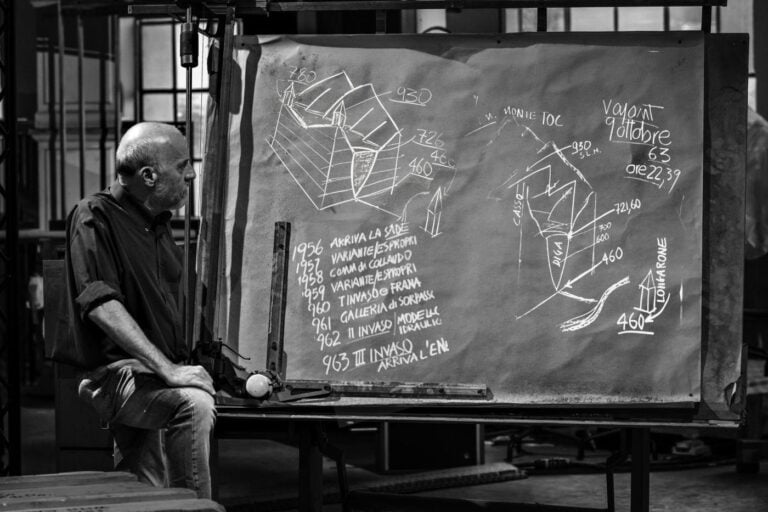 780
930
726
460
460
1956 ARRIVA LA SADE
1957 VARIANTE/ESPROPRI
1958 COMM DI COLLAUDO
1959 VARIANTE/ESPROPRI
1960 I INVASO FRANA
1961 GALLERIA di SORPASSO
1962 II INVASO MODELLO IDRAULIC
963 III INVASO
ARRIVA L'EN
MONTE TOC
930
S.L.M.
CASSO
721,60
700
600
DIGA
460
LONGARONE
460
Vajont
9 ottobre
63
ore 22,39